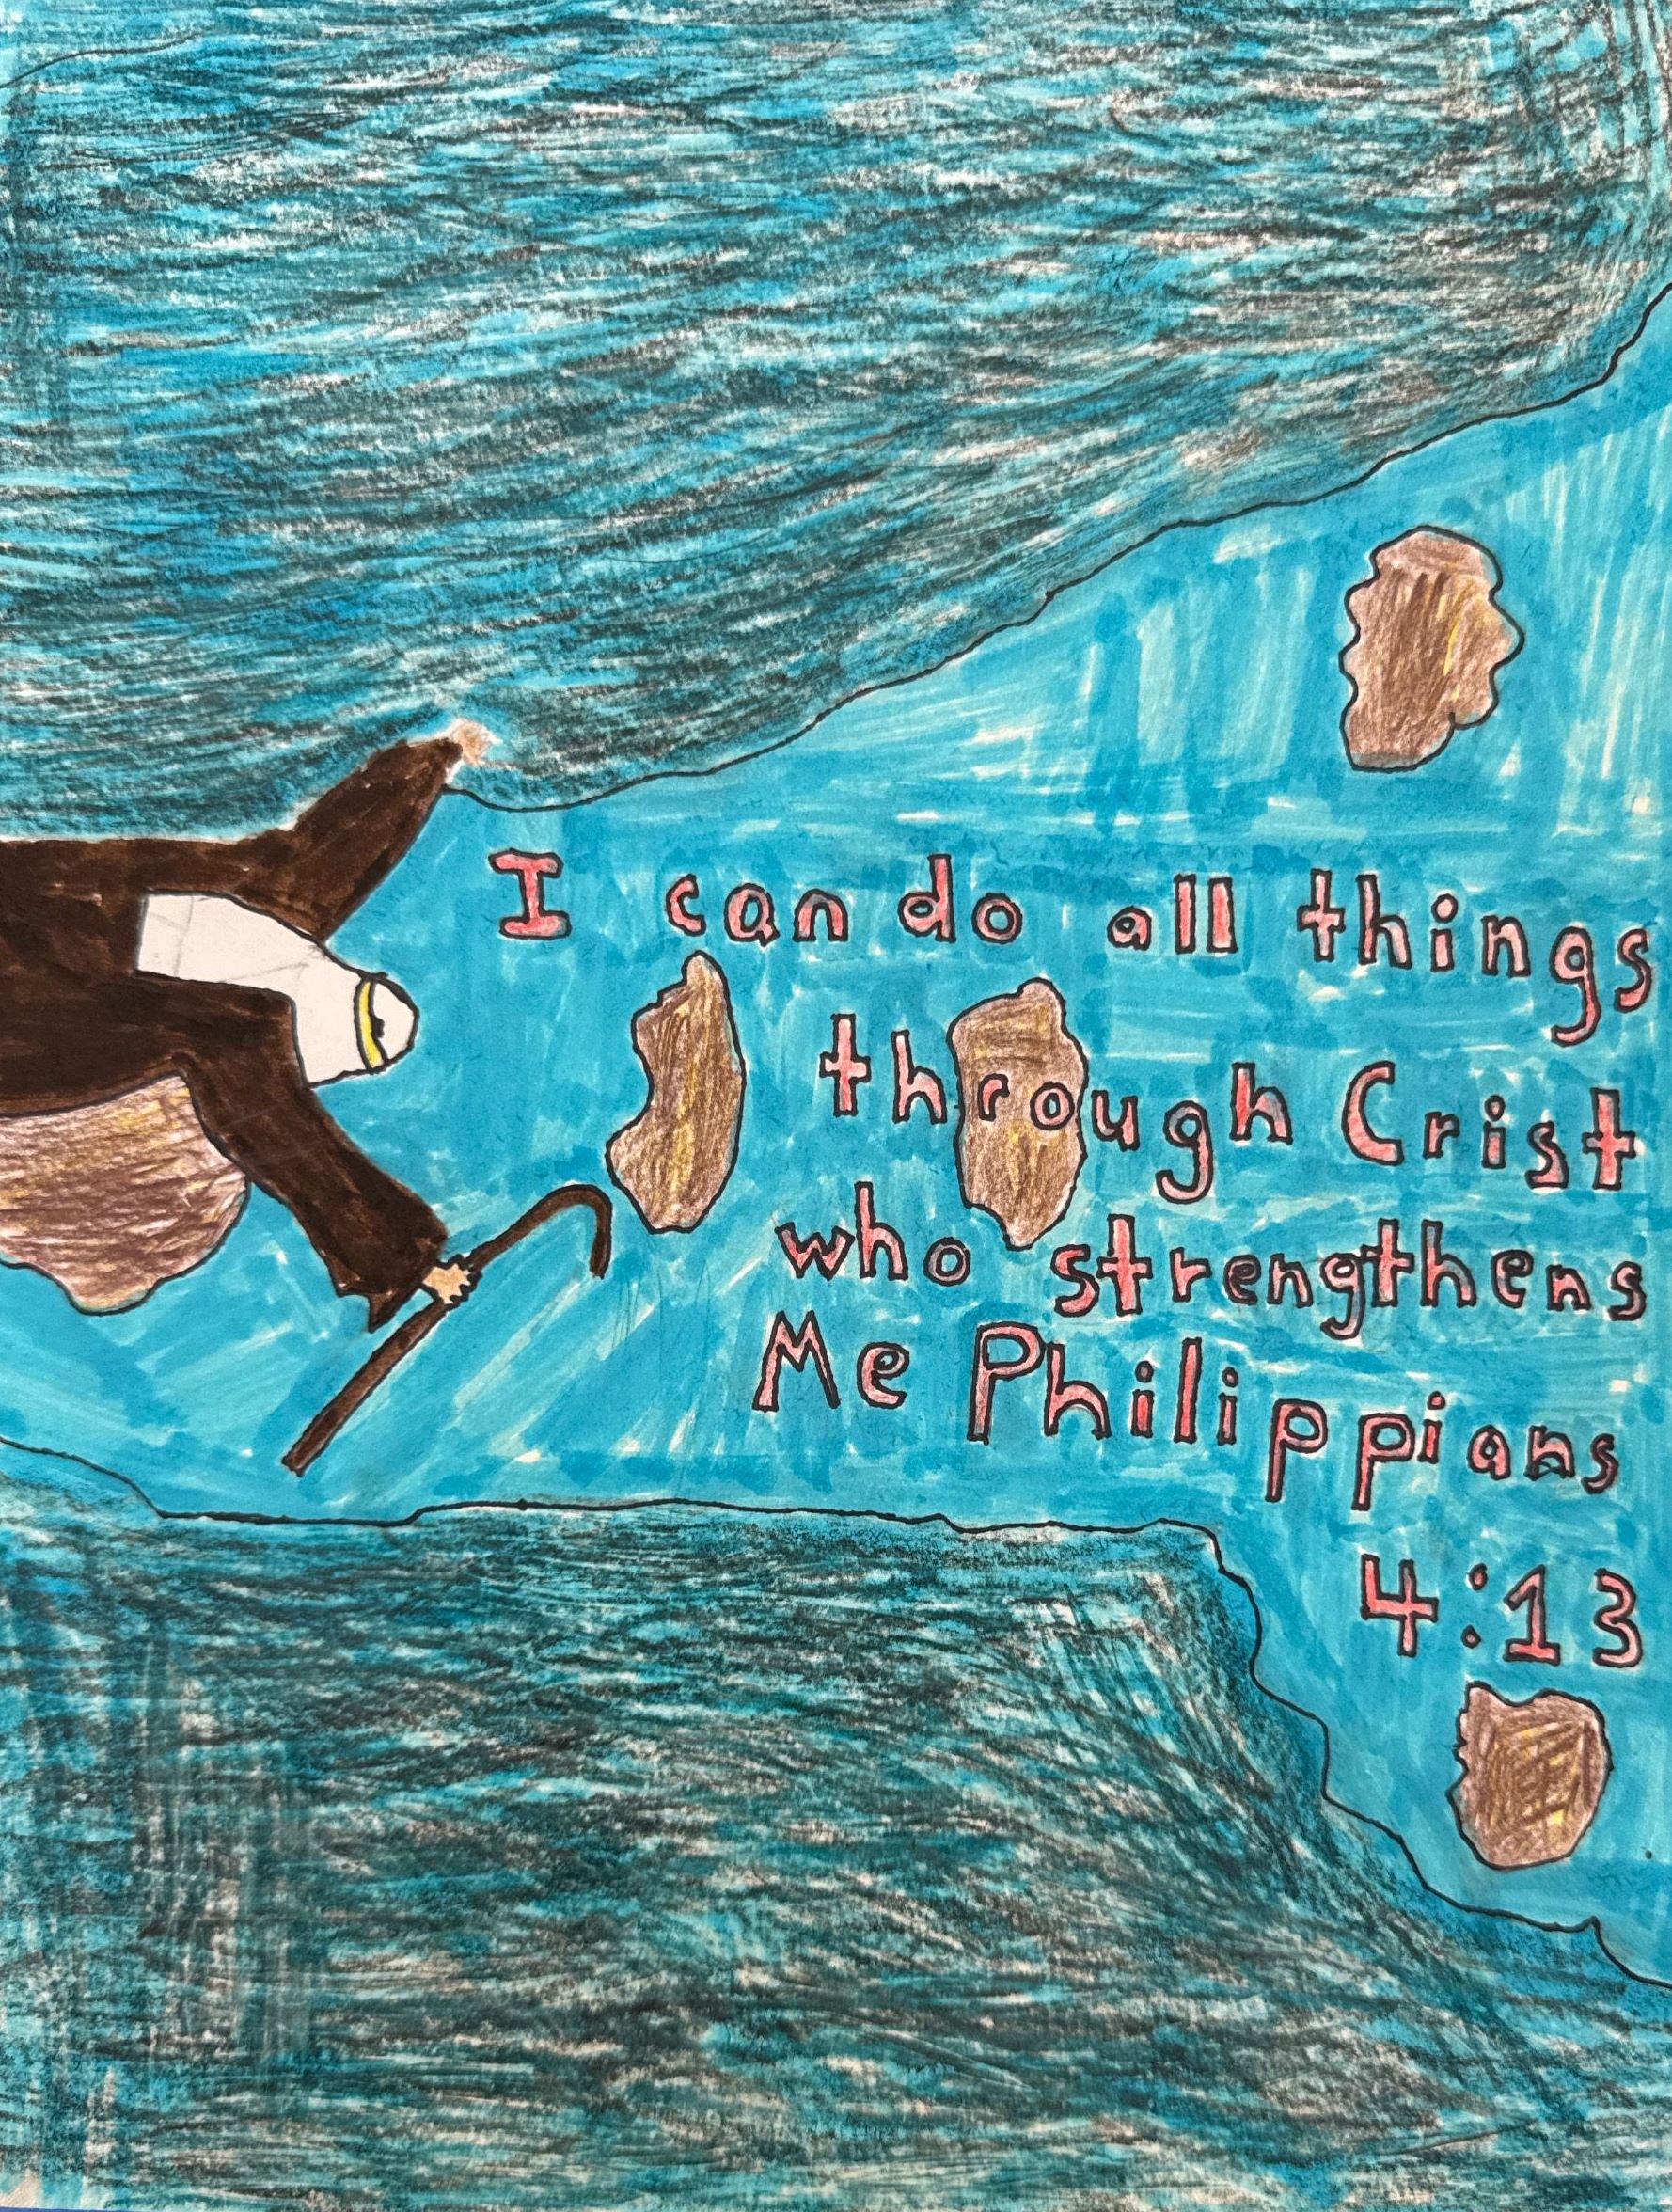 I can do all things
through Crist
who strengthens
Me Philippians
4:13